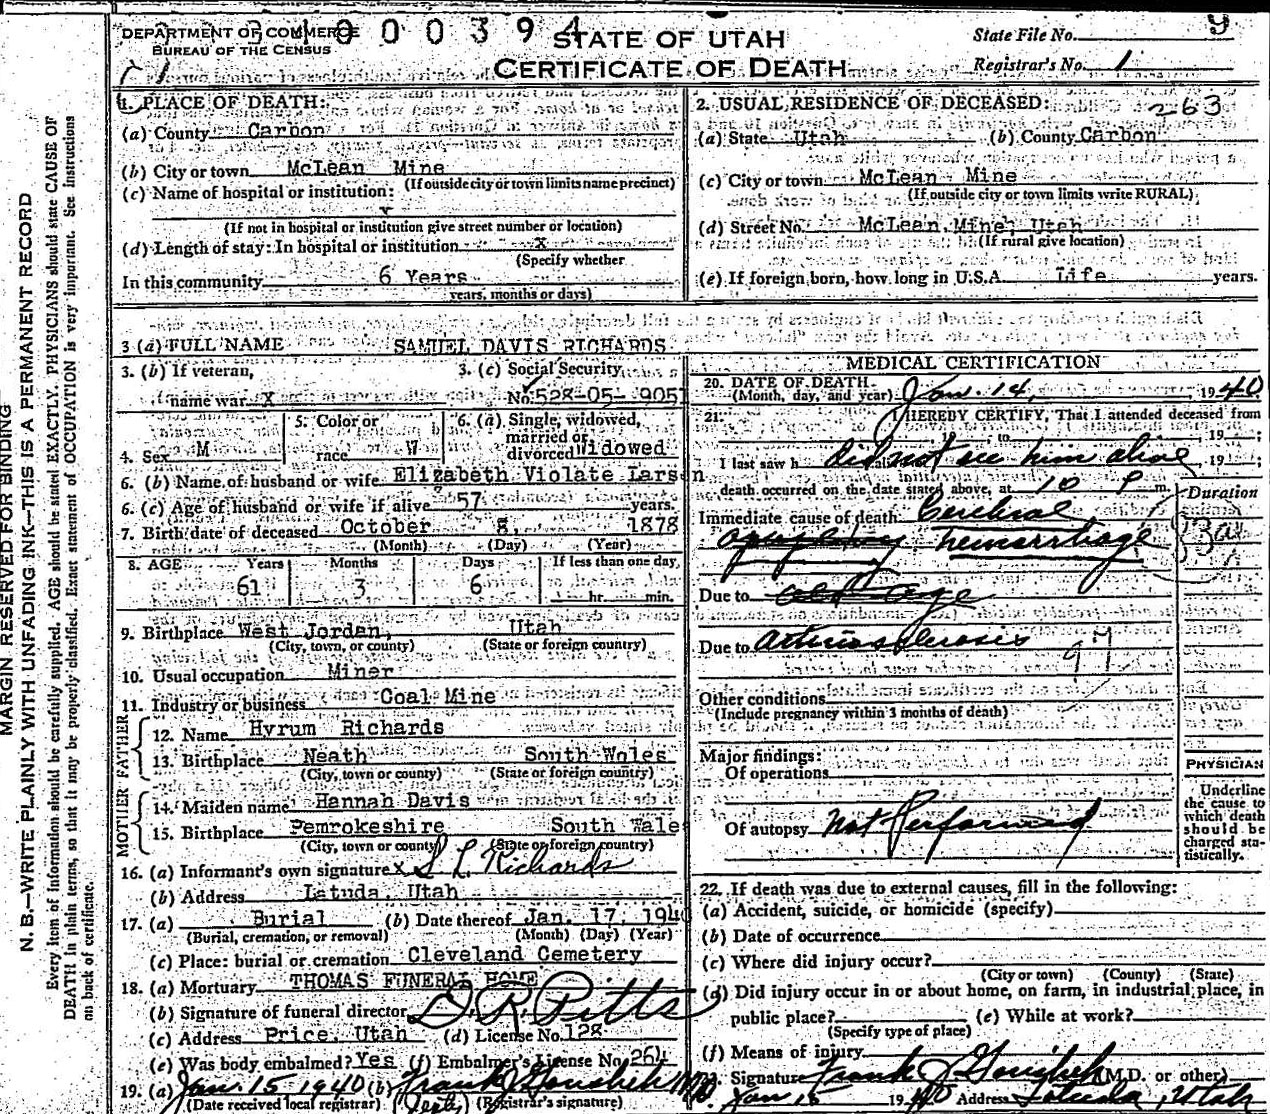 DEPARTMENT OF COMMERCE
BUREAU OF THE CENSUS
000394
STATE OF UTAH
CERTIFICATE OF DEATH
State File No. 9
Registrar's No. 1
MARGIN RESERVED FOR BINDING
N. B.—WRITE PLAINLY WITH UNFADING INK—THIS IS A PERMANENT RECORD
Every item of information should be carefully supplied. AGE should be stated EXACTLY. PHYSICIANS should state CAUSE OF
DEATH in plain terms, so that it may be properly classified. Exact statement of OCCUPATION is very important. See Instructions
on back of certificate.
1. PLACE OF DEATH:
(a) County Carbon
(b) City or town McLean Mine
(If outside city or town limits name precinct)
(c) Name of hospital or institution:
(If not in hospital or institution give street number or location)
(d) Length of stay: In hospital or institution x
(Specify whether
In this community 6 Years
years, months or days)
2. USUAL RESIDENCE OF DECEASED:
263
(a) State Utah (b) County Carbon
(c) City or town McLean Mine
(If outside city or town limits write RURAL)
(d) Street No. McLean Mine, Utah
(If rural give location)
(e) If foreign born, how long in U.S.A. Life years.
3 (a) FULL NAME SAMUEL DAVIS RICHARDS
3. (b) If veteran,
name war X
3. (c) Social Security
No. 528-05-9051
4. Sex M
5. Color or
race W
6. (a) Single, widowed,
married or
divorced Widowed
6. (b) Name of husband or wife Elizabeth Violate Larsen
6. (c) Age of husband or wife if alive 57 years.
7. Birth date of deceased October 8, 1878
(Month) (Day) (Year)
8. AGE Years Months Days If less than one day
61 3 6 hr. min.
9. Birthplace West Jordan, Utah
(City, town, or county) (State or foreign country)
10. Usual occupation Miner
11. Industry or business Coal Mine
FATHER
12. Name Hyrum Richards
13. Birthplace Neath South Wales
(City, town or county) (State or foreign country)
MOTHER
14. Maiden name Hannah Davis
15. Birthplace Pemrokeshire South Wale
(City, town or county) (State or foreign country)
16. (a) Informant's own signature x S L Richards
(b) Address Latuda, Utah
17. (a) Burial (b) Date thereof Jan. 17, 1940
(Burial, cremation, or removal) (Month) (Day) (Year)
(c) Place: burial or cremation Cleveland Cemetery
18. (a) Mortuary THOMAS FUNERAL HOME
(b) Signature of funeral director D. R. Pitts
(c) Address Price, Utah (d) License No. 128
(e) Was body embalmed? Yes (f) Embalmer's License No. 264
19. (a) Jan. 15 1940 (b) Frank J Gorishek MD.
(Date received local registrar) (Registrar's signature)
MEDICAL CERTIFICATION
20. DATE OF DEATH
(Month, day, and year) Jan. 14, 1940
21. I HEREBY CERTIFY, That I attended deceased from
, to , 19 ;
I last saw h did not see him alive , 19 ;
death occurred on the date stated above, at 10 P m.
Duration
Immediate cause of death Cerebral
apoplexy hemorrhage
Due to old age
Due to Arteriosclerosis
97
Other conditions
(Include pregnancy within 3 months of death)
Major findings:
Of operations
Of autopsy Not Performed
PHYSICIAN
Underline
the cause to
which death
should be
charged sta-
tistically.
22. If death was due to external causes, fill in the following:
(a) Accident, suicide, or homicide (specify)
(b) Date of occurrence
(c) Where did injury occur?
(City or town) (County) (State)
(d) Did injury occur in or about home, on farm, in industrial place, in
public place? (e) While at work?
(Specify type of place)
(f) Means of injury
Signature Frank J Gorishek (M.D. or other)
Jan 15 1940 Address Latuda, Utah